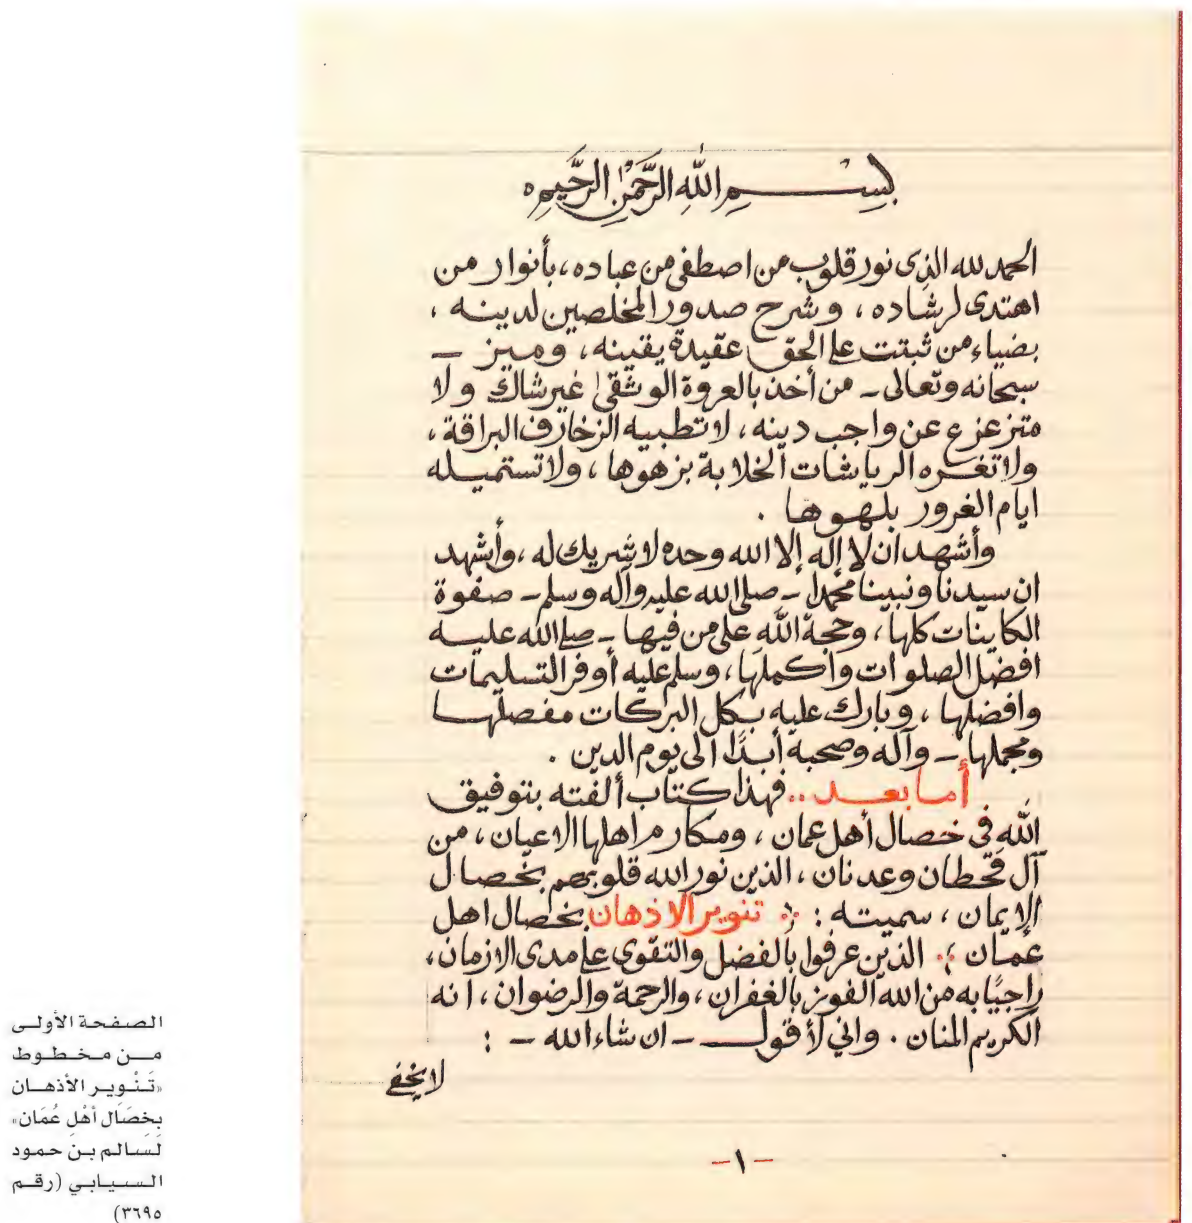 بِسْمِ اللَّهِ الرَّحَمْنِ الرَّحَيمِ ه
الحمد لله الذى نور قلوب من اصطفى من عباده، بأنوار من
اهتدى لرشاده ، وشرح صدور المخلصين لدينه ،
بضياء من ثبتت على الحق عقيدة يقينه ، وميز —
سبحانه وتعالى - من أخذ بالعروة الوثقى غير شاك ولا
متزعزع عن واجب دينه ، لا تطبيه الزخارف البراقة ،
ولا تغره الرياشات الخلابة بزهوها ، ولا تستميله
ايام الغرور بلهوها .
وأشهد ان لا إله إلا الله وحده لا شريك له ، وأشهد
ان سيدنا ونبينا محمدا - صلى الله عليه وآله وسلم - صفوة
الكاينات كلها ، وحجة الله على من فيها - صلى الله عليه
افضل الصلوات واكملها ، وسلم عليه أوفر التسليمات
وافضلها ، وبارك عليه بكل البركات مفصلها
ومجملها - وآله وصحبه أبدًا الى يوم الدين .
أما بعد .. فهذا كتاب ألفته بتوفيق
الله في خصال أهل عمان ، ومكارم اهلها الاعيان ، من
آل قحطان وعدنان ، الذين نور الله قلوبهم بخصال
الإيمان ، سميته : ﴿ تنوير الاذهان بخصال اهل
عمان ﴾ الذين عرفوا بالفضل والتقوى على مدى الازمان ،
راجيًا به من الله الفوز بالغفران ، والرحمة والرضوان ، انه
الكريم المنان . واني لأقول — ان شاء الله - :
لا يخفى
-١-
الصفحة الأولى
من مخطوط
«تَنْوِير الأذهان
بِخصَال أهْلِ عُمَان»
لسالم بن حمود
السيابي (رقم
٣٦٩٥)